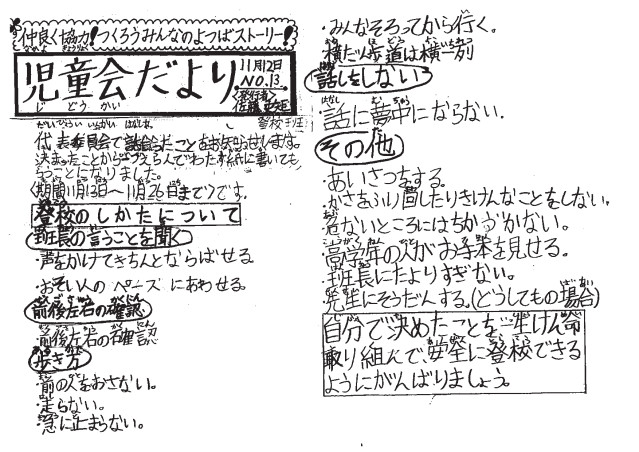 仲良く協力!つくろうみんなのよつばストーリー!
児童会だより
じどうかい
11月12日
NO.13
<発行者>
登校班
代表委員会で話合ったことをお知らせします。
決まったことから
わたす紙に書いても
らうことになりました。
<期間11月13日～11月26日まで>です。
登校のしかたについて
班長の言うことを聞く
・声をかけてきちんとならばせる
・おそい人のペースにあわせる。
前後左右の確認
・前後左右の確認
歩き方
・前の人をおさない。
・走らない。
・急に止まらない。
・みんなそろってから行く。
・横だん歩道は横一列
話しをしない
・話に夢中にならない。
その他
・あいさつをする。
・かさをふり回したりきけんなことをしない。
・危ないところにはちかづかない。
・高学年の人がお手本を見せる。
・班長にたよりすぎない。
・先生にそうだんする。(どうしてもの場合)
自分で決めたことを一生けん命
取り組んで、安全に登校できる
ようにがんばりましょう。